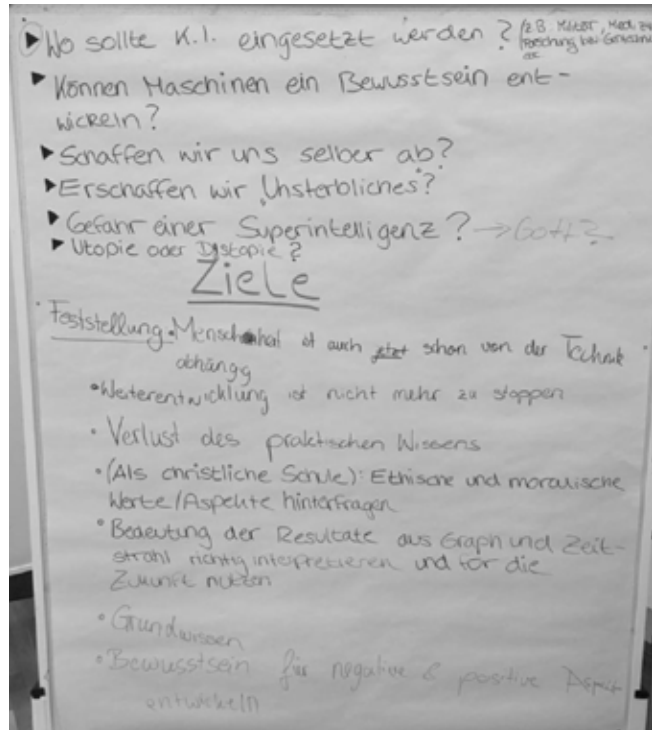 Wo sollte K.I. eingesetzt werden? (z.B. Militär, Med. zur
Forschung bei
Können Maschinen ein Bewusstsein ent-
wickeln?
Schaffen wir uns selber ab?
Erschaffen wir „Unsterbliches"?
Gefahr einer Superintelligenz? → Gott?
Utopie oder Dystopie?
Ziele
Feststellung • Mensch ist auch schon von der Technik
abhängg
• Weiterentwicklung ist nicht mehr zu stoppen
• Verlust des praktischen Wissens
• (Als christliche Schule): Ethische und moralische
Werte/Aspekte hinterfragen
• Bedeutung der Resultate aus Graph und Zeit-
strahl richtig interpretieren und für die
Zukunft nutzen
• Grundwissen
• Bewusstsein für negative & positive Aspekt
entwickeln